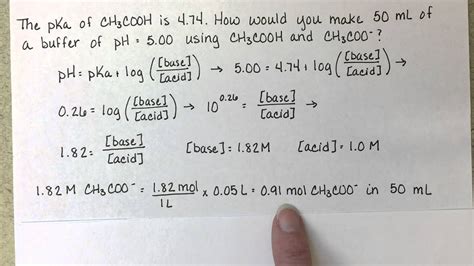 The pKa of CH₃COOH is 4.74. How would you make 50 mL of
a buffer of pH = 5.00 using CH₃COOH and CH₃COO⁻?
pH = pKa + log([base]/[acid]) → 5.00 = 4.74 + log([base]/[acid]) →
0.26 = log([base]/[acid]) → 10^0.26 = [base]/[acid] →
1.82 = [base]/[acid] [base] = 1.82M [acid] = 1.0 M
1.82 M CH₃COO⁻ = 1.82 mol/1L x 0.05 L = 0.91 mol CH₃COO⁻ in 50 mL